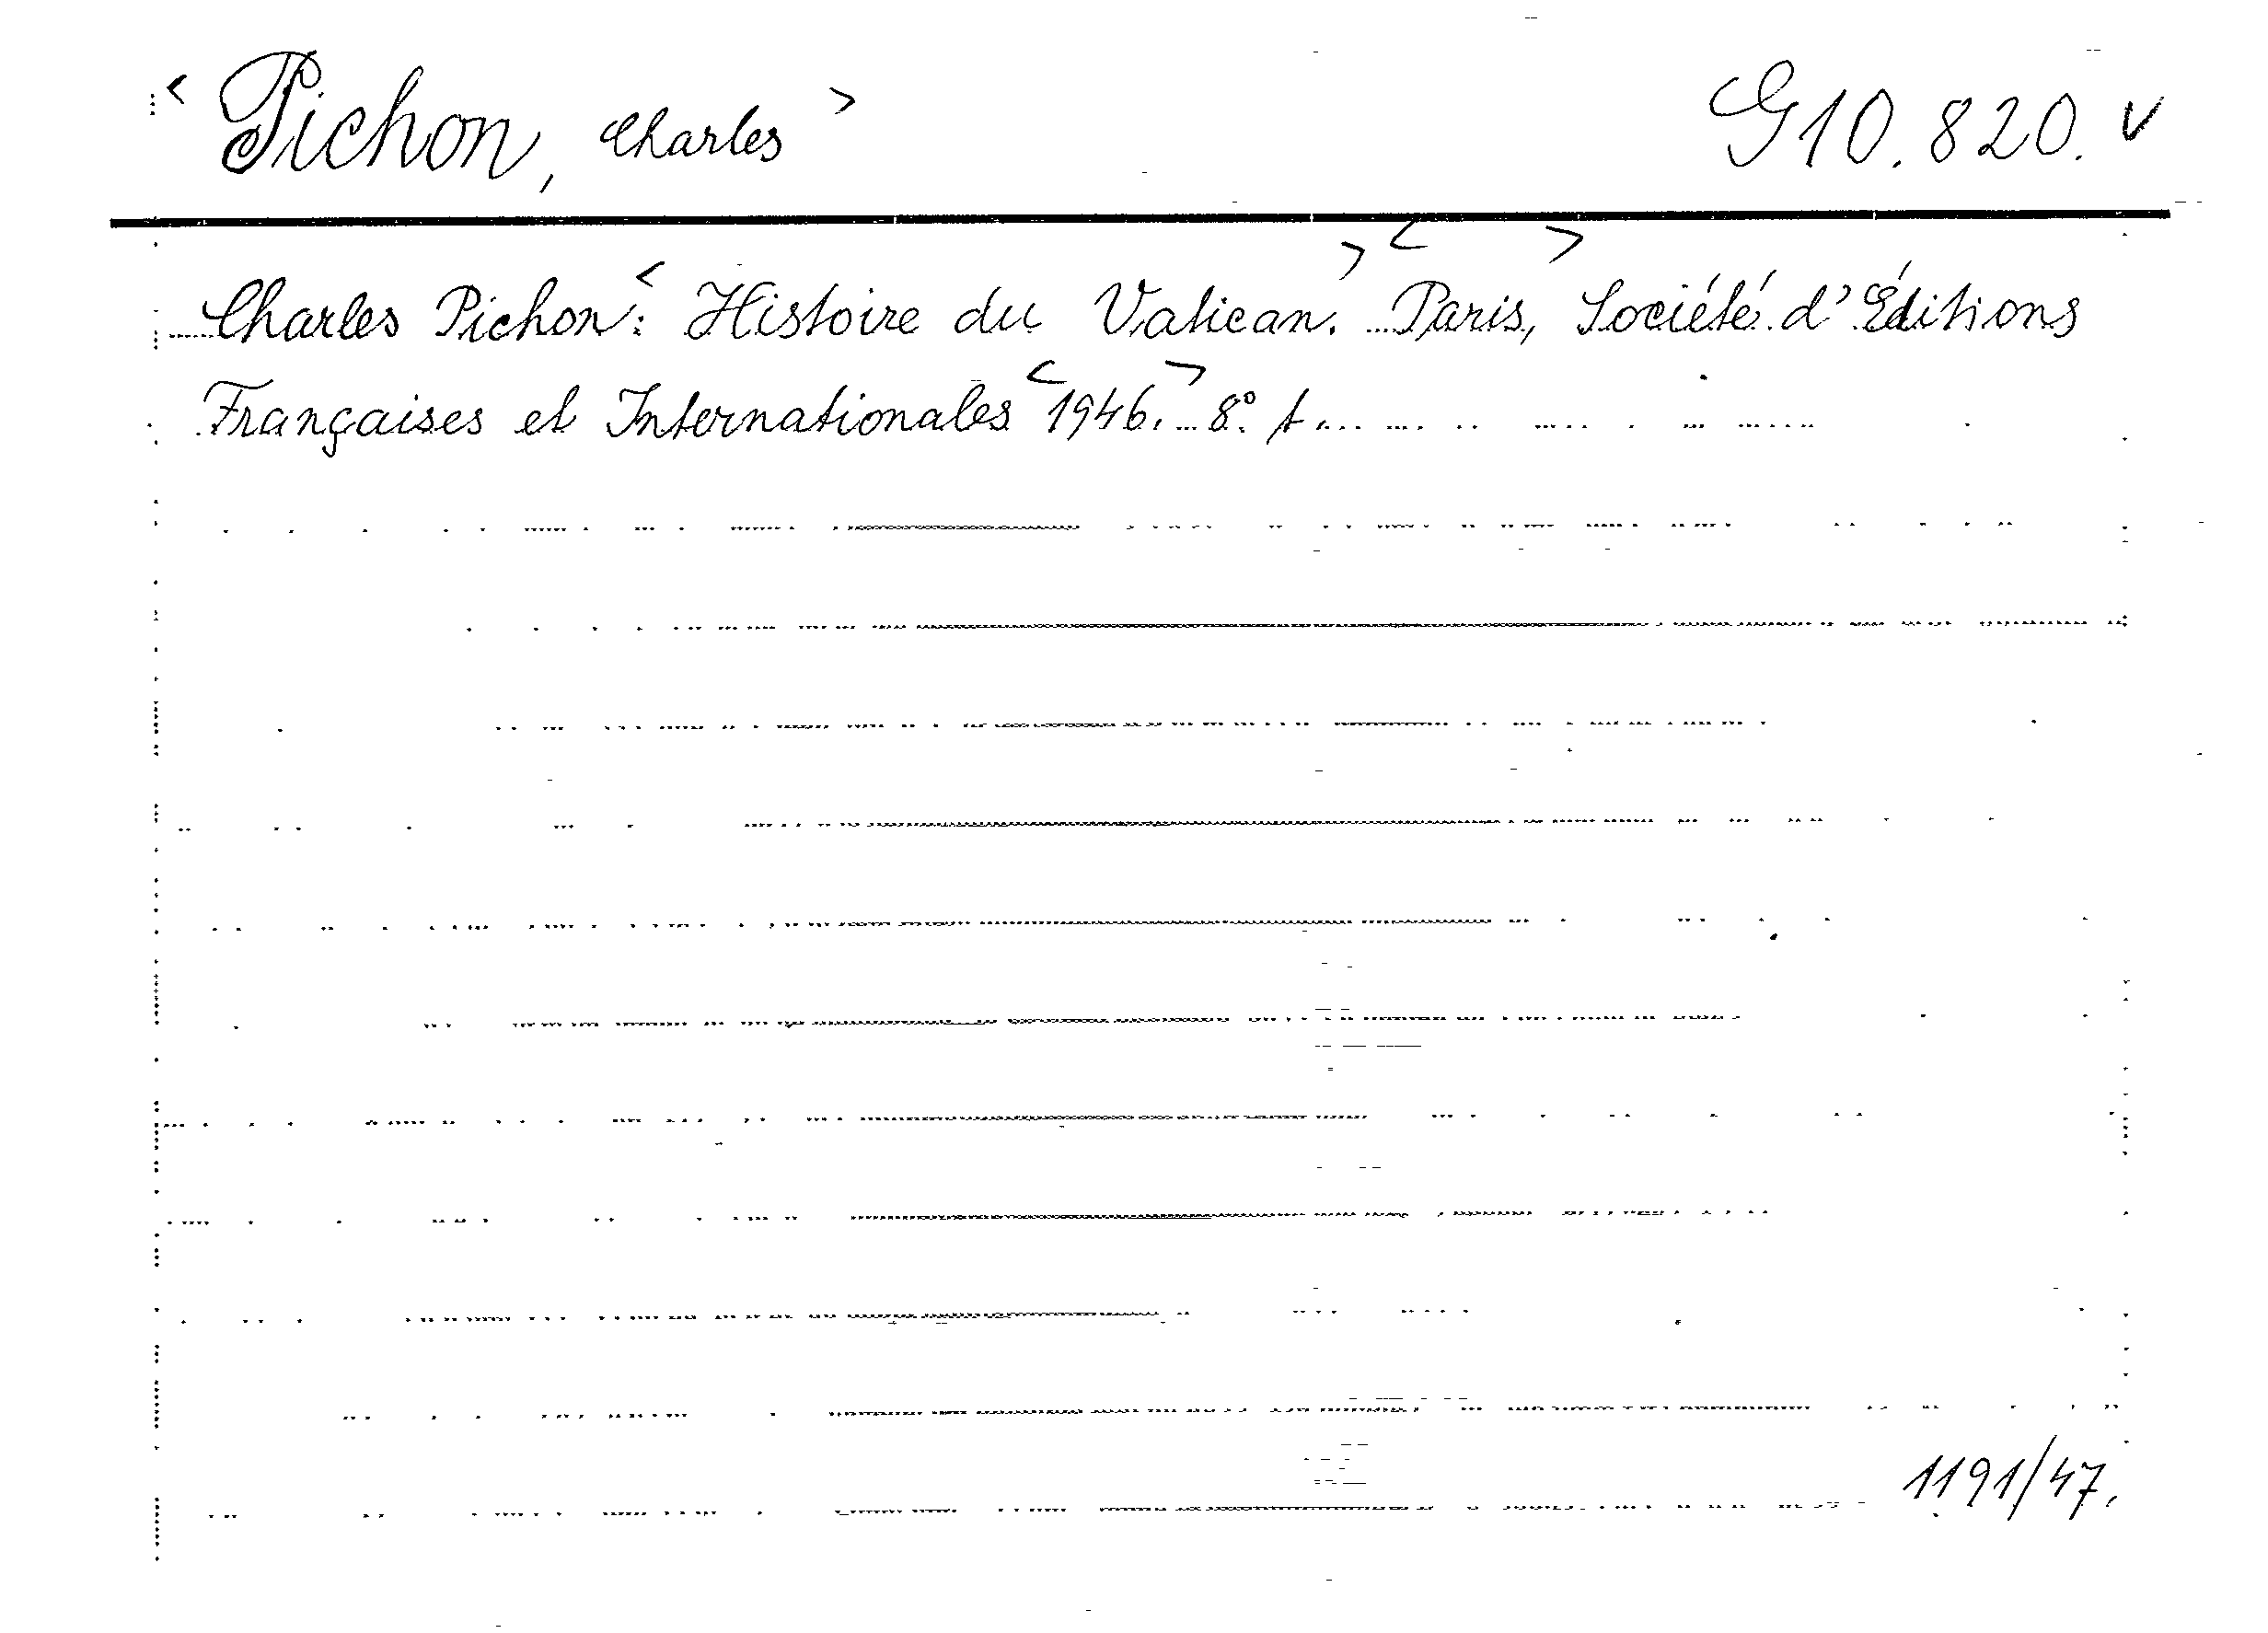 < Pichon, Charles > G10.820. v
Charles Pichon: < Histoire du Vatican. > < Paris, > Société d'Éditions
Françaises et Internationales < 1946. > 8° t.
1191/47.